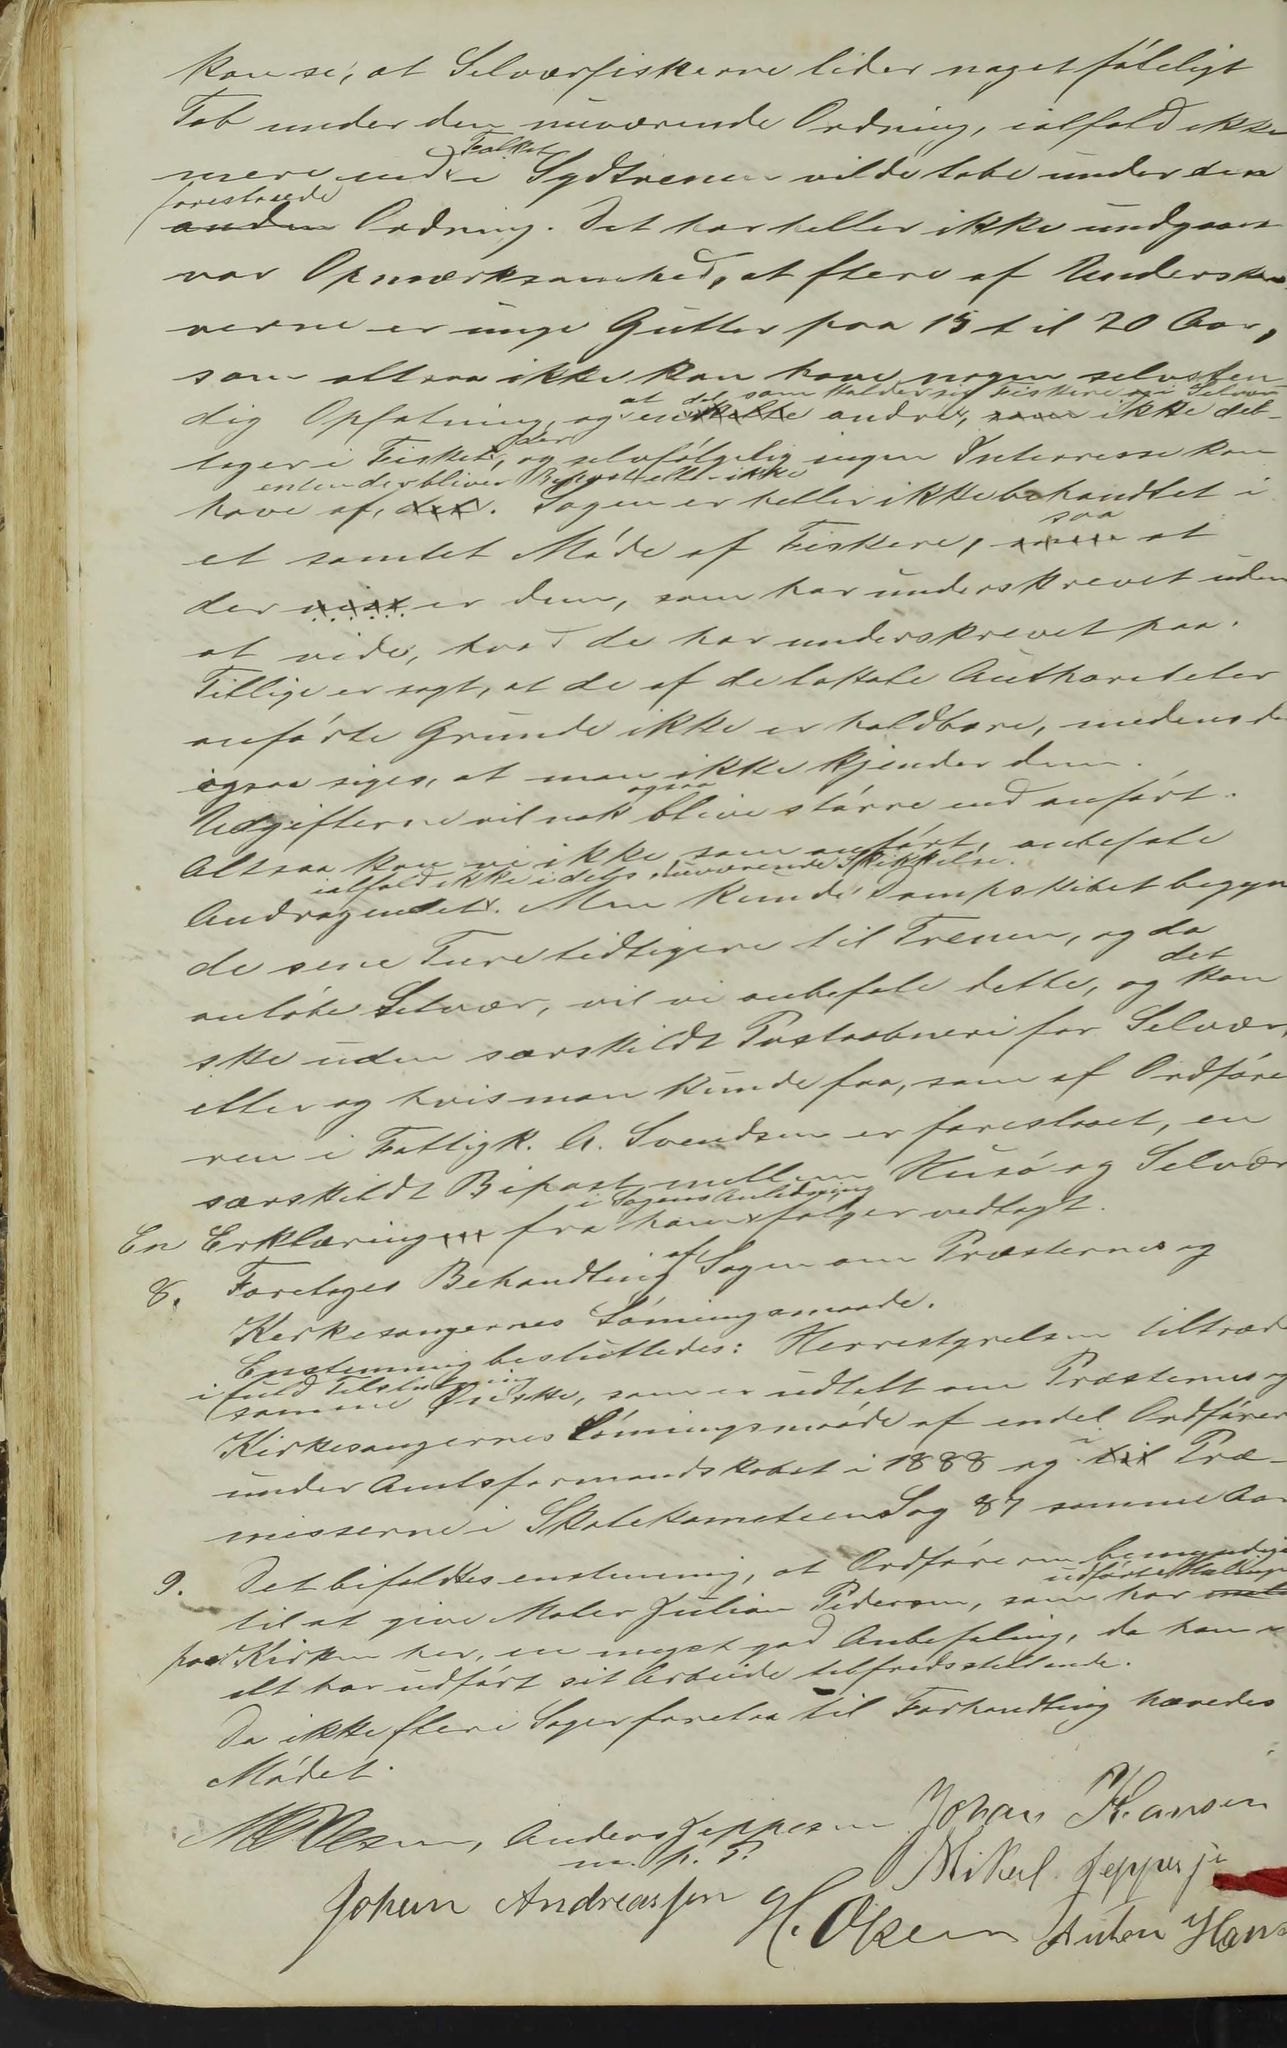 kan se, at Selværfiskerne lider noget føleligt
Tab under den nuværende Ordning, ialfald ikke
Folket
mere end i Sydtrenen vilde tabe under den
foreslaaede
anden Ordning. Det har heller ikke undgaaet
vor Opmærksomhed, at flere af Underskri
verne er unge Gutter paa 15 til 20 Aar,
som altsaa ikke kan have nogen selvsten
at det som holder sig Fiskere i Selvær
dig Opfatning, og enkelte andre, som ikke del-
der
tager i Fisket, og selvfølgelig ingen Interesse kan
enten der bliver Bipost eller ikke
have af, det. Sagen er heller ikke behandlet i
saa
et samlet Møde af Fiskere, at
der vist er dem, som har underskrevet uden
at vide, hvad de har underskrevet paa.
Tillige er sagt, at de af de lokale Authoriteter
anførte Grunde ikke er holdbare, medens de
ogsaa siges, at man ikke kjender dem.
ogsaa
Udgifterne vil nok blive større end anført.
Altsaa kan vi ikke som anført, anbefale
ialfald ikke i dets nuværende Skikkelse.
Andragendet. Men kunde Dampskibet begyn
de sine Ture tidligere til Trenen, og da
anløbe Selvær, vil vi anbefale dette, og
det
kan
ske uden særskildt Postaabneri for Selvær,
eller og hvis man kunde faa, som af Ordføre
ren i Fattigk. A. Svendsen er foreslaaet, en
særskildt Bipost mellem Husø og Selvær
i Sagens Anledning
En Erklæring fra ham følger vedlagt.
8. Foretages Behandling af Sagen om Præsternes og
Kirkesangernes Lønningsmaade.
Enstemmig besluttedes: Herrestyrelsen tiltræder
i fuld Tilslutning
samme Ønske, som er udtalt om Præsternes og
Kirkesangernes Lønningsmaade af endel Ordfører
under Amtsformandskabet i 1888 og til Præ-
misserne i Skatekomiteens Sag 87 samme Aar
9. Det bifaldtes enstemmig, at Ordføreren bemyndiges
udførte Malinger
til at give Maler Julian Pedersen, som har
paa Kirken her, en meget god Anbefaling, da han
alt har udført sit Arbeide tilfredsstillende.
Da ikke flere Sager forelaa til Forhandling hævedes
Mødet.
Anders Jeppesen Johan Hansen
m. p. P.
Mikal Jeppesen
Johan Andreassen H. Olsen Anton Hans